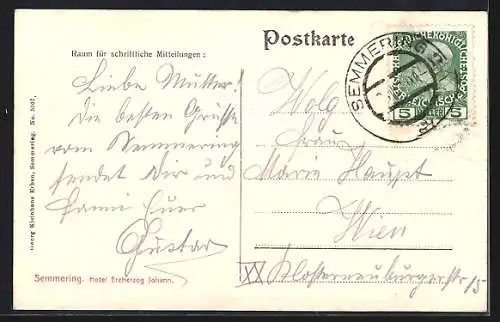 Postkarte
Raum für schriftliche Mitteilungen :
Liebe Mutter!
Die besten Grüsse
vom Semmering
sendet Dir und
Fanni Euer
Gustav
Wolg
Frau
Marie Haupt
Wien
XX Klosterneuburgerstr
15
SEMMERING
5 HELLER 5
Georg Kleinhans Erben, Semmering. No.
Semmering. Hotel Erzherzog Johann.